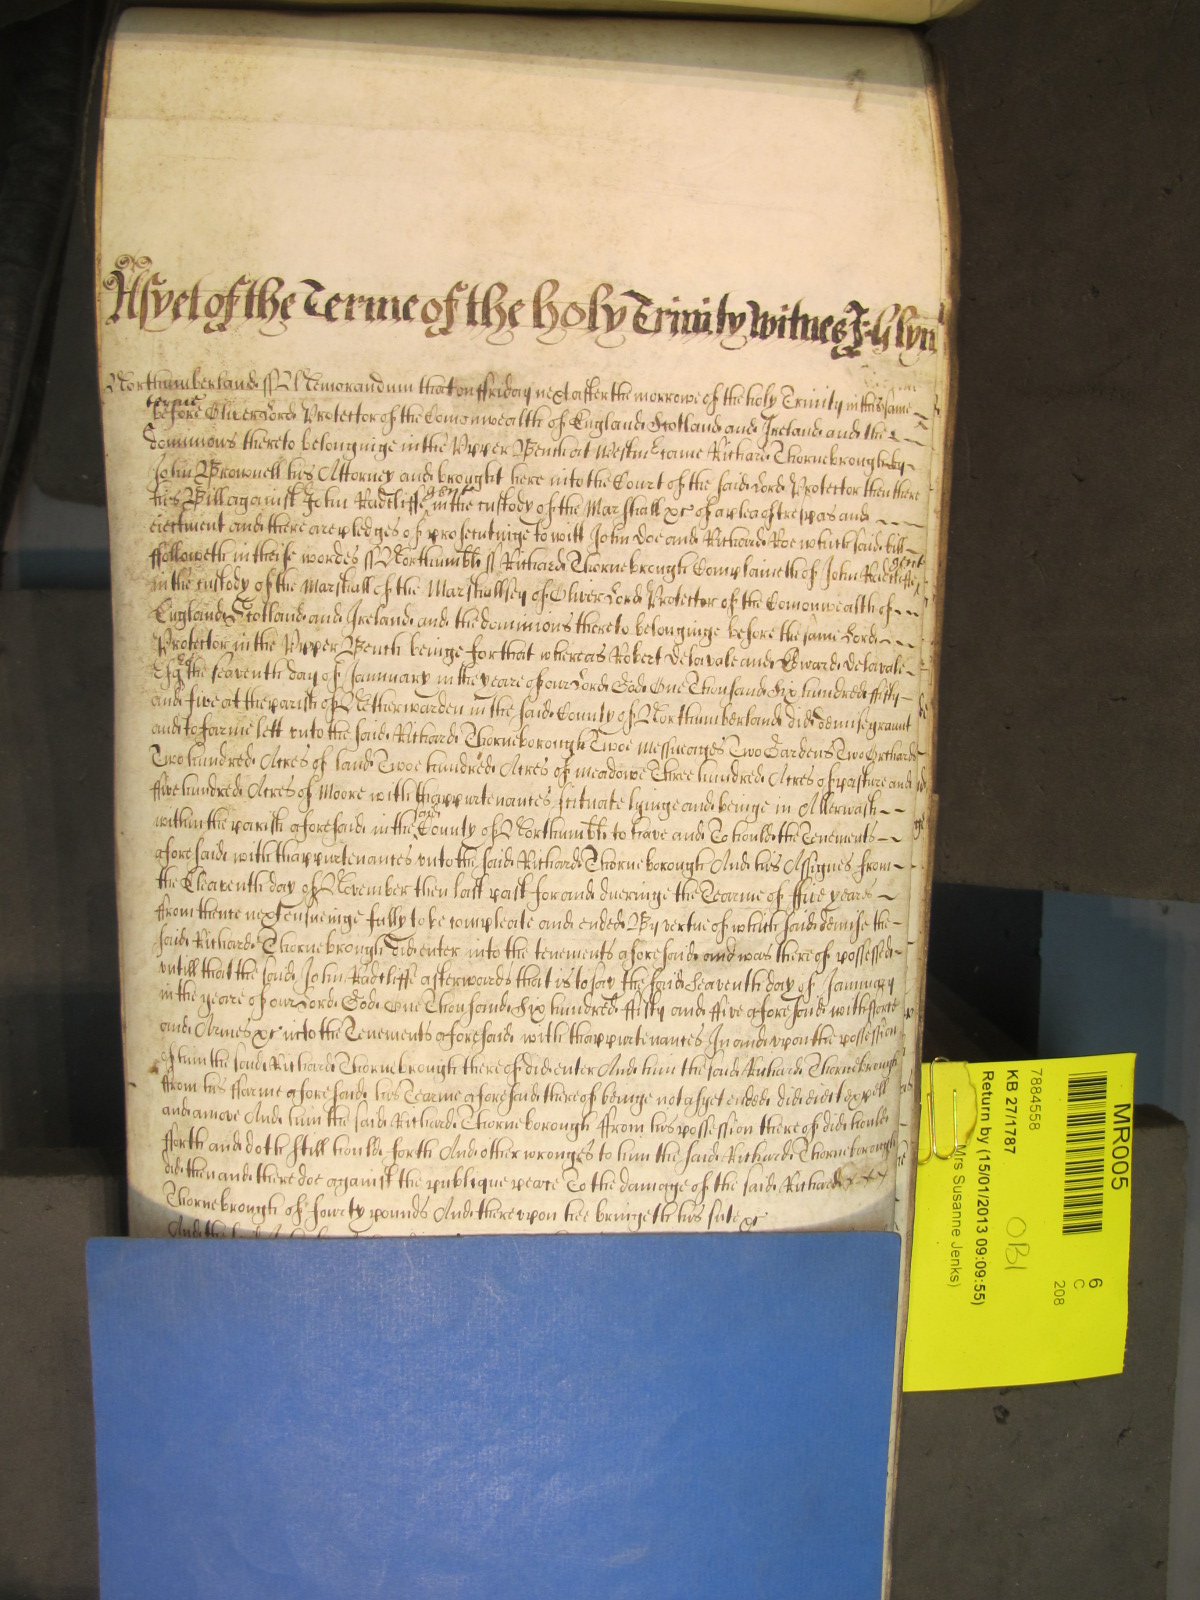 As yet of the Terme of the holy Trinity Witnes J: Glyn
Northumberland ss Memorandum that on ffriday next after the morrowe of the holy Trinity in this same
terme
before Oliver Lord Protector of the Comonwealth of England Scotland and Ireland and the
dominions thereto belonginge in the Upper Bench at Westm̄ came Richard Thornebrough by
John Brownell his Attorney and brought here into the Court of the said Lord Protector then there
his Bill against John Radcliffe gent in the custody of the Marshall &c of a plea of trespas and
eiectment and there are pledges of prosecutinge to witt John Doe and Richard Roe which said bill
ffolloweth in theise wordes ss Northumbl ss Richard Thornebrough Complaineth of John Radcliffe gent
in the custody of the Marshall of the Marshallsey of Oliver Lord Protector of the Comonwealth of
England Scotland and Ireland and the dominions thereto belonginge before the same Lord
Protector in the Upper Bench beinge for that whereas Robert Delavale and Edward Delavale
Esqrs the seaventh day of January in the yeare of our Lord God One Thousand Six hundred ffifty
and five at the parish of Netherwarden in the said County of Northumberland did demise graunt
and to farme lett unto the said Richard Thorneborough Twoe Messueages Two Gardens Two Orchards
Two hundred Acres of land Twoe hundred Acres of meadowe Three hundred Acres of pasture and
ffive hundred Acres of Moore with thappurtenances scituate lyinge and beinge in Allerwash
within the parish aforesaid in the said County of Northumbl to have and To hould the Tenements
aforesaid with thappurtenances unto the said Richard Thorneborough And his Assignes from
the Eleaventh day of November then last past for and dueringe the Tearme of ffive yeares
from thence next ensueinge fully to be compleate and ended By vertue of which said demise the
said Richard Thornebrough did enter into the tenements aforesaid and was thereof possessed
untill that the said John Radcliffe afterwards that is to say the said seaventh day of January
in the yeare of our Lord God One Thousand Six hundred ffifty and ffive aforesaid with fforce
and Armes &c into the Tenements aforesaid with thappurtenances In and upon the possession
of him the said Richard Thornebrough thereof did enter And him the said Richard Thornebrough
ffrom his ffarme aforesaid his Tearme aforesaid thereof beinge not as yet ended did eiect expell
and amove And him the said Richard Thorneborough ffrom his possession thereof did hould
fforth and doth still hould forth And other wronges to him the said Richard Thorneborough
did then and there doe against the publique peace To the damage of the said Richard
Thornebrough of fourty pounds And thereupon hee bringeth his sute &c
MR005
6
C
208
7884558
KB 27/1787
OBI
Return by (15/01/2013 09:09:55)
Mrs Susanne Jenks)